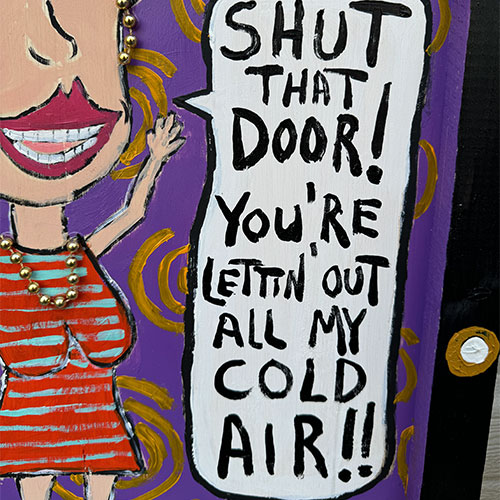 SHUT
THAT
DOOR!
YOU'RE
LETTIN' OUT
ALL MY
COLD
AIR!!